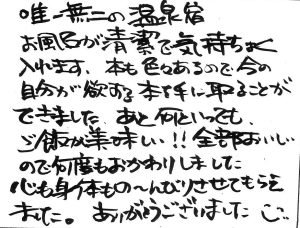 唯一無二の温泉宿
お風呂が清潔で気持ちよく
入れます。本も色々あるので今の
自分が欲する本を手に取ることが
できました。あと何といっても、
ご飯が美味しい!!全部おいしい
ので何度もおかわりしました
心も身体もの〜んびりさせてもらえ
ました。ありがとうございました